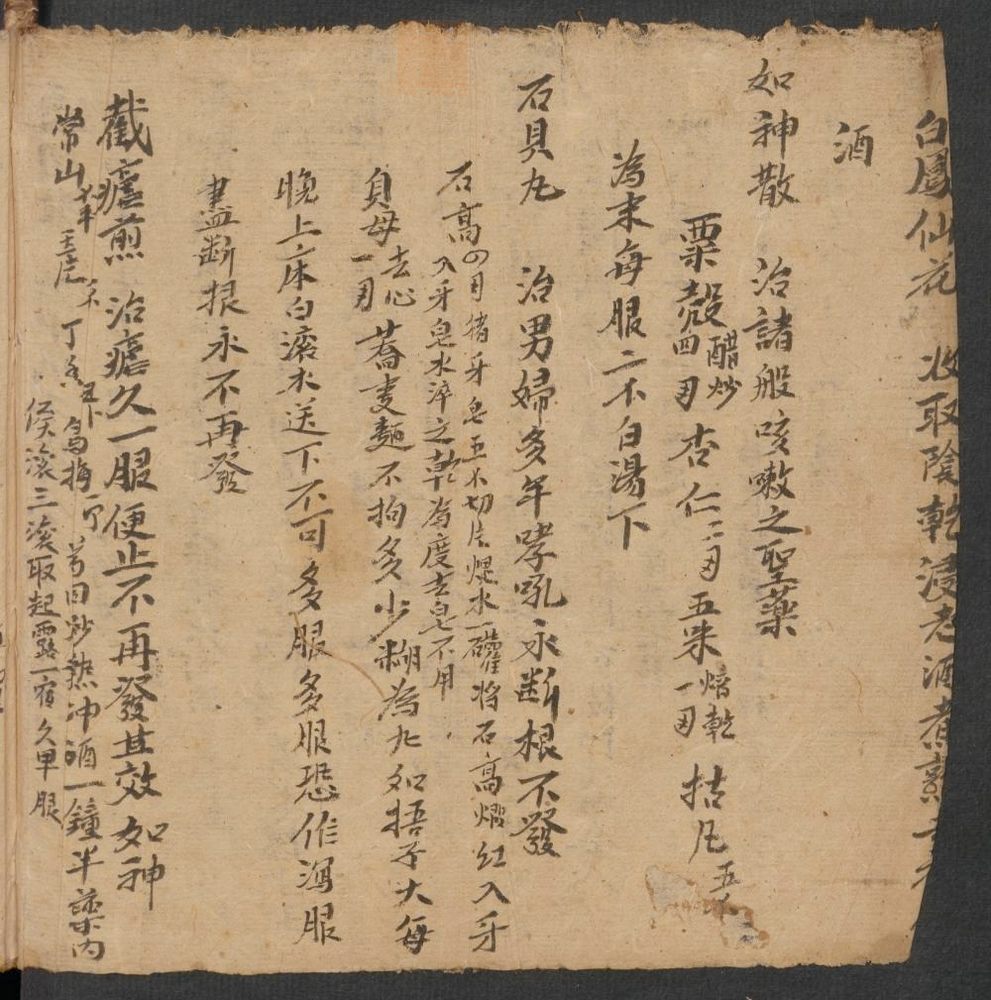 白鳳仙花 收取陰乾浸老酒煮熟
酒
如神散 治諸般咳嗽之聖藥
粟殼醋炒四刄 杏仁二刄 五朱焙乾一刄 枯凡五
為末每服二不白湯下
石貝丸 治男婦多年哮吼永断根不發
石膏四刄 猪牙皂五不切片焜水一礶将石膏煆红入牙
入牙皂水淬之乾為度去皂不用
貝母去心一刄 蕎麦麵不拘多少糊為丸如捂子大每
晚上床白滚水送下不可多服多服恐作瀉服
盡斷根永不再發
截瘧煎 治瘧久一服便止不再發甚效如神
常山 丁香 烏梅 炒熱冲酒一鐘半藥内
滚三滚取起露一宿久早服